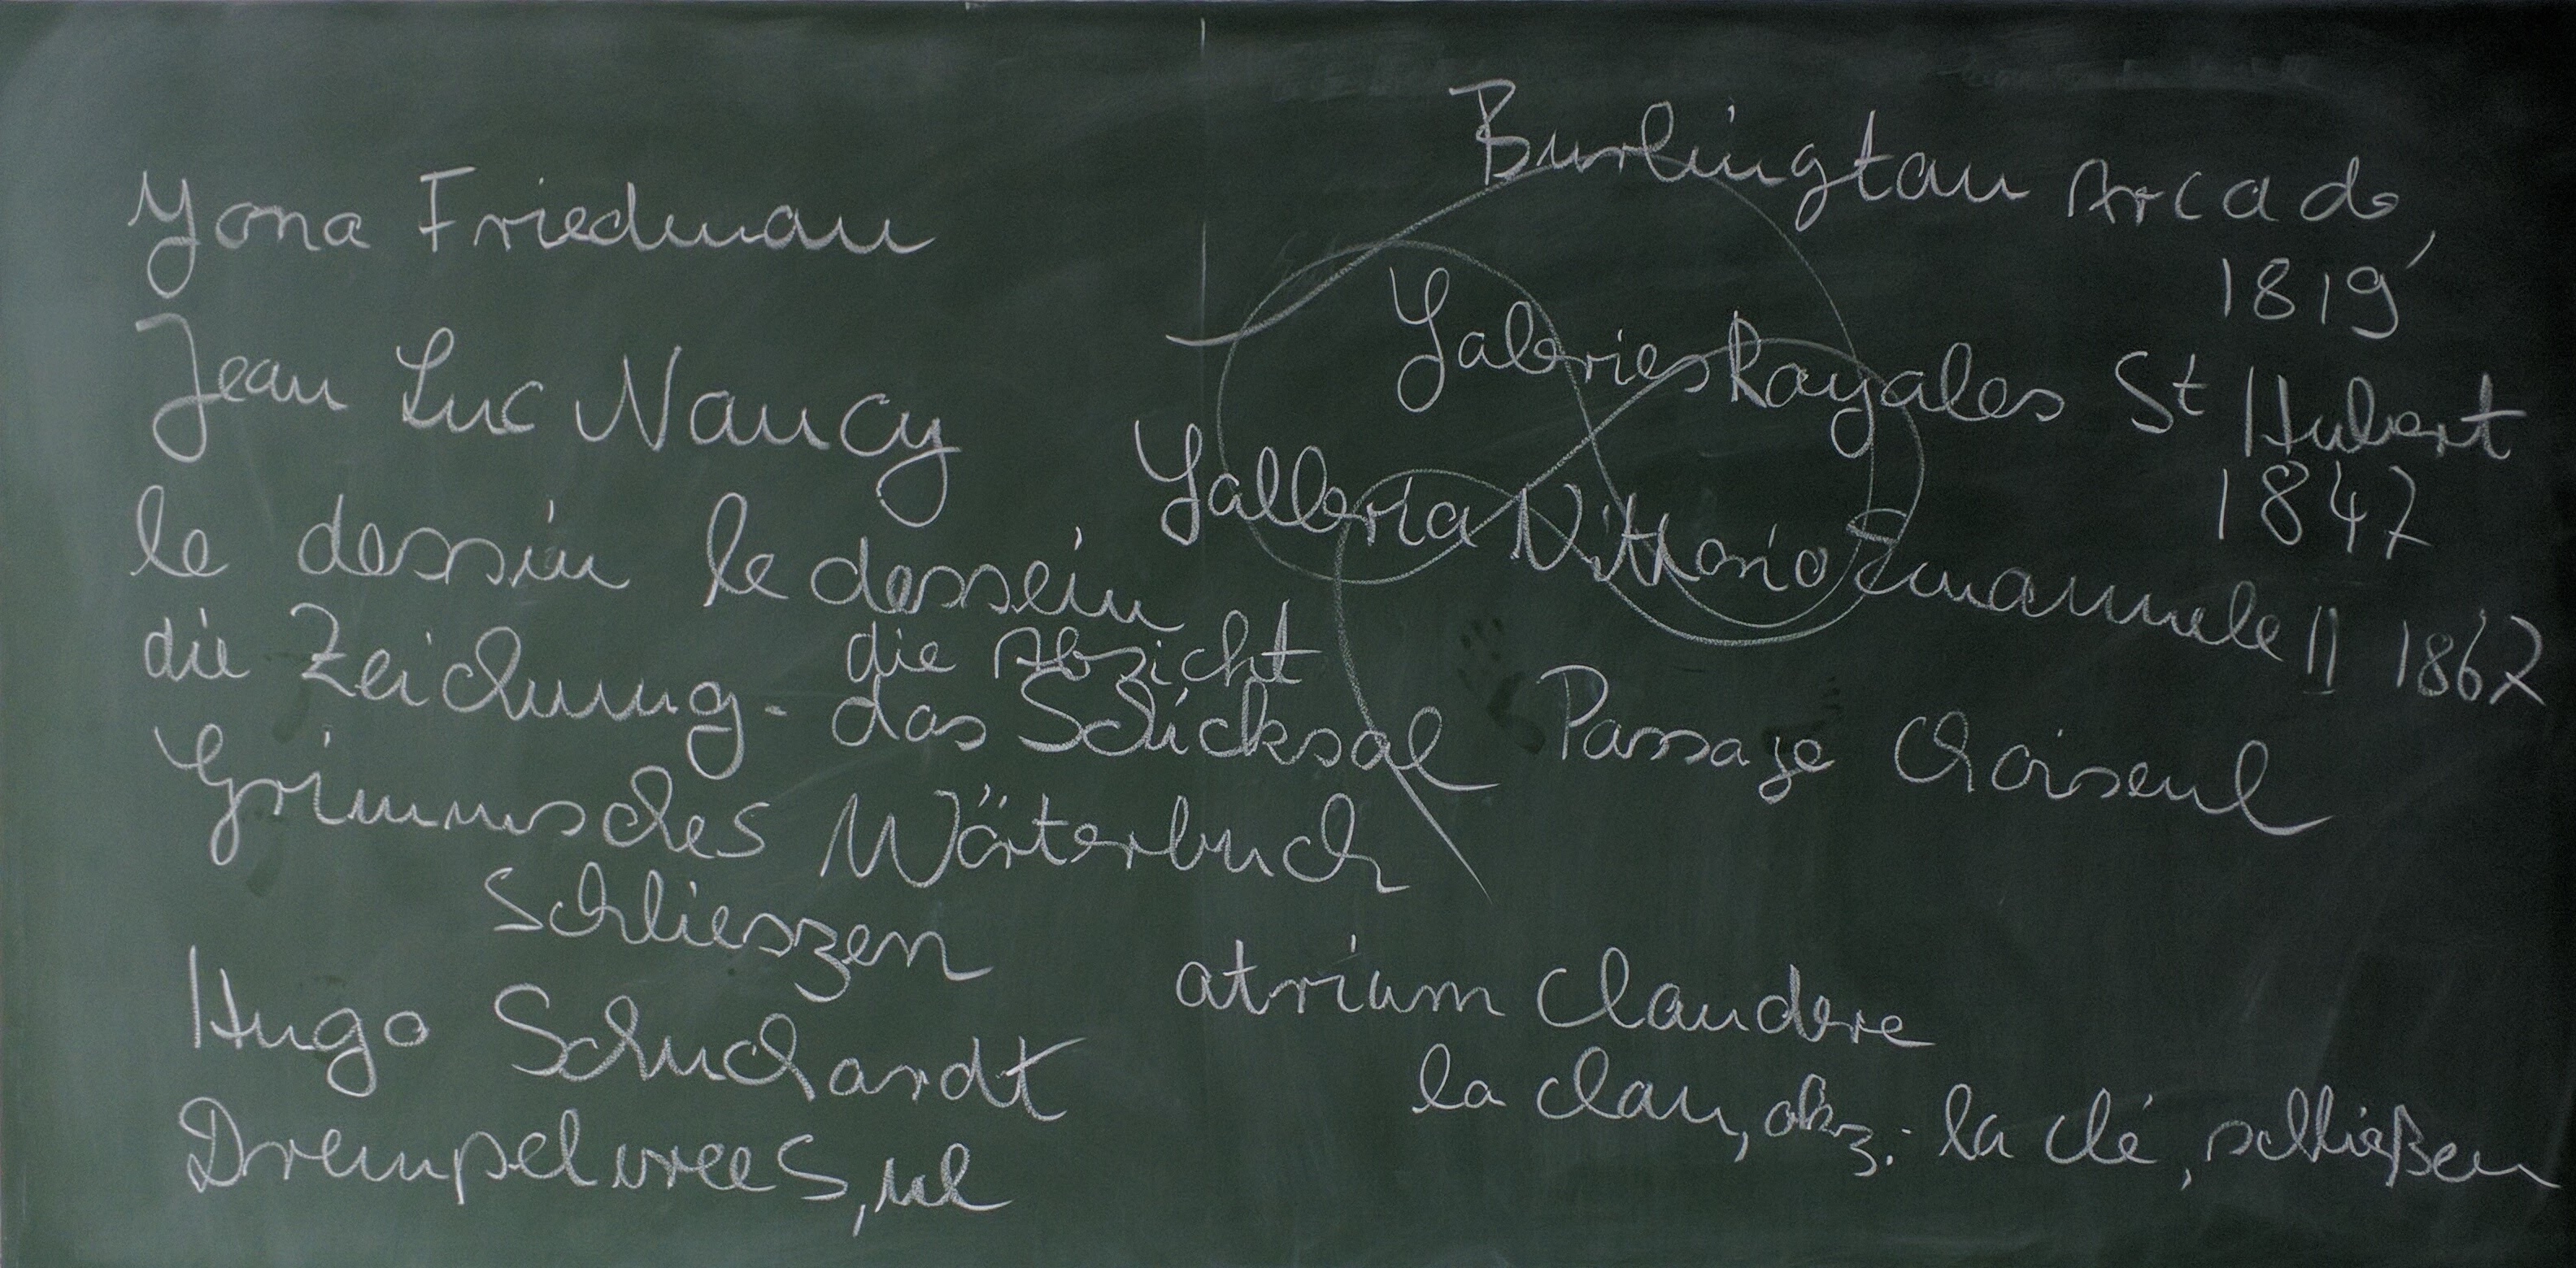 Yona Friedman
Jean Luc Nancy
le dessin le dessein
die Zeichnung - die Abzicht
das Schicksal
Grimmsches Wörterbuch
Schlieszen
Hugo Schuchardt
Drempelvrees, nl
Burlington Arcade,
1819
Galeries Royales St Hubert
1847
Galleria Vittorio Emanuele II 1867
Passage Choiseul
atrium claudere
la clau, okz.: la clé, schließen